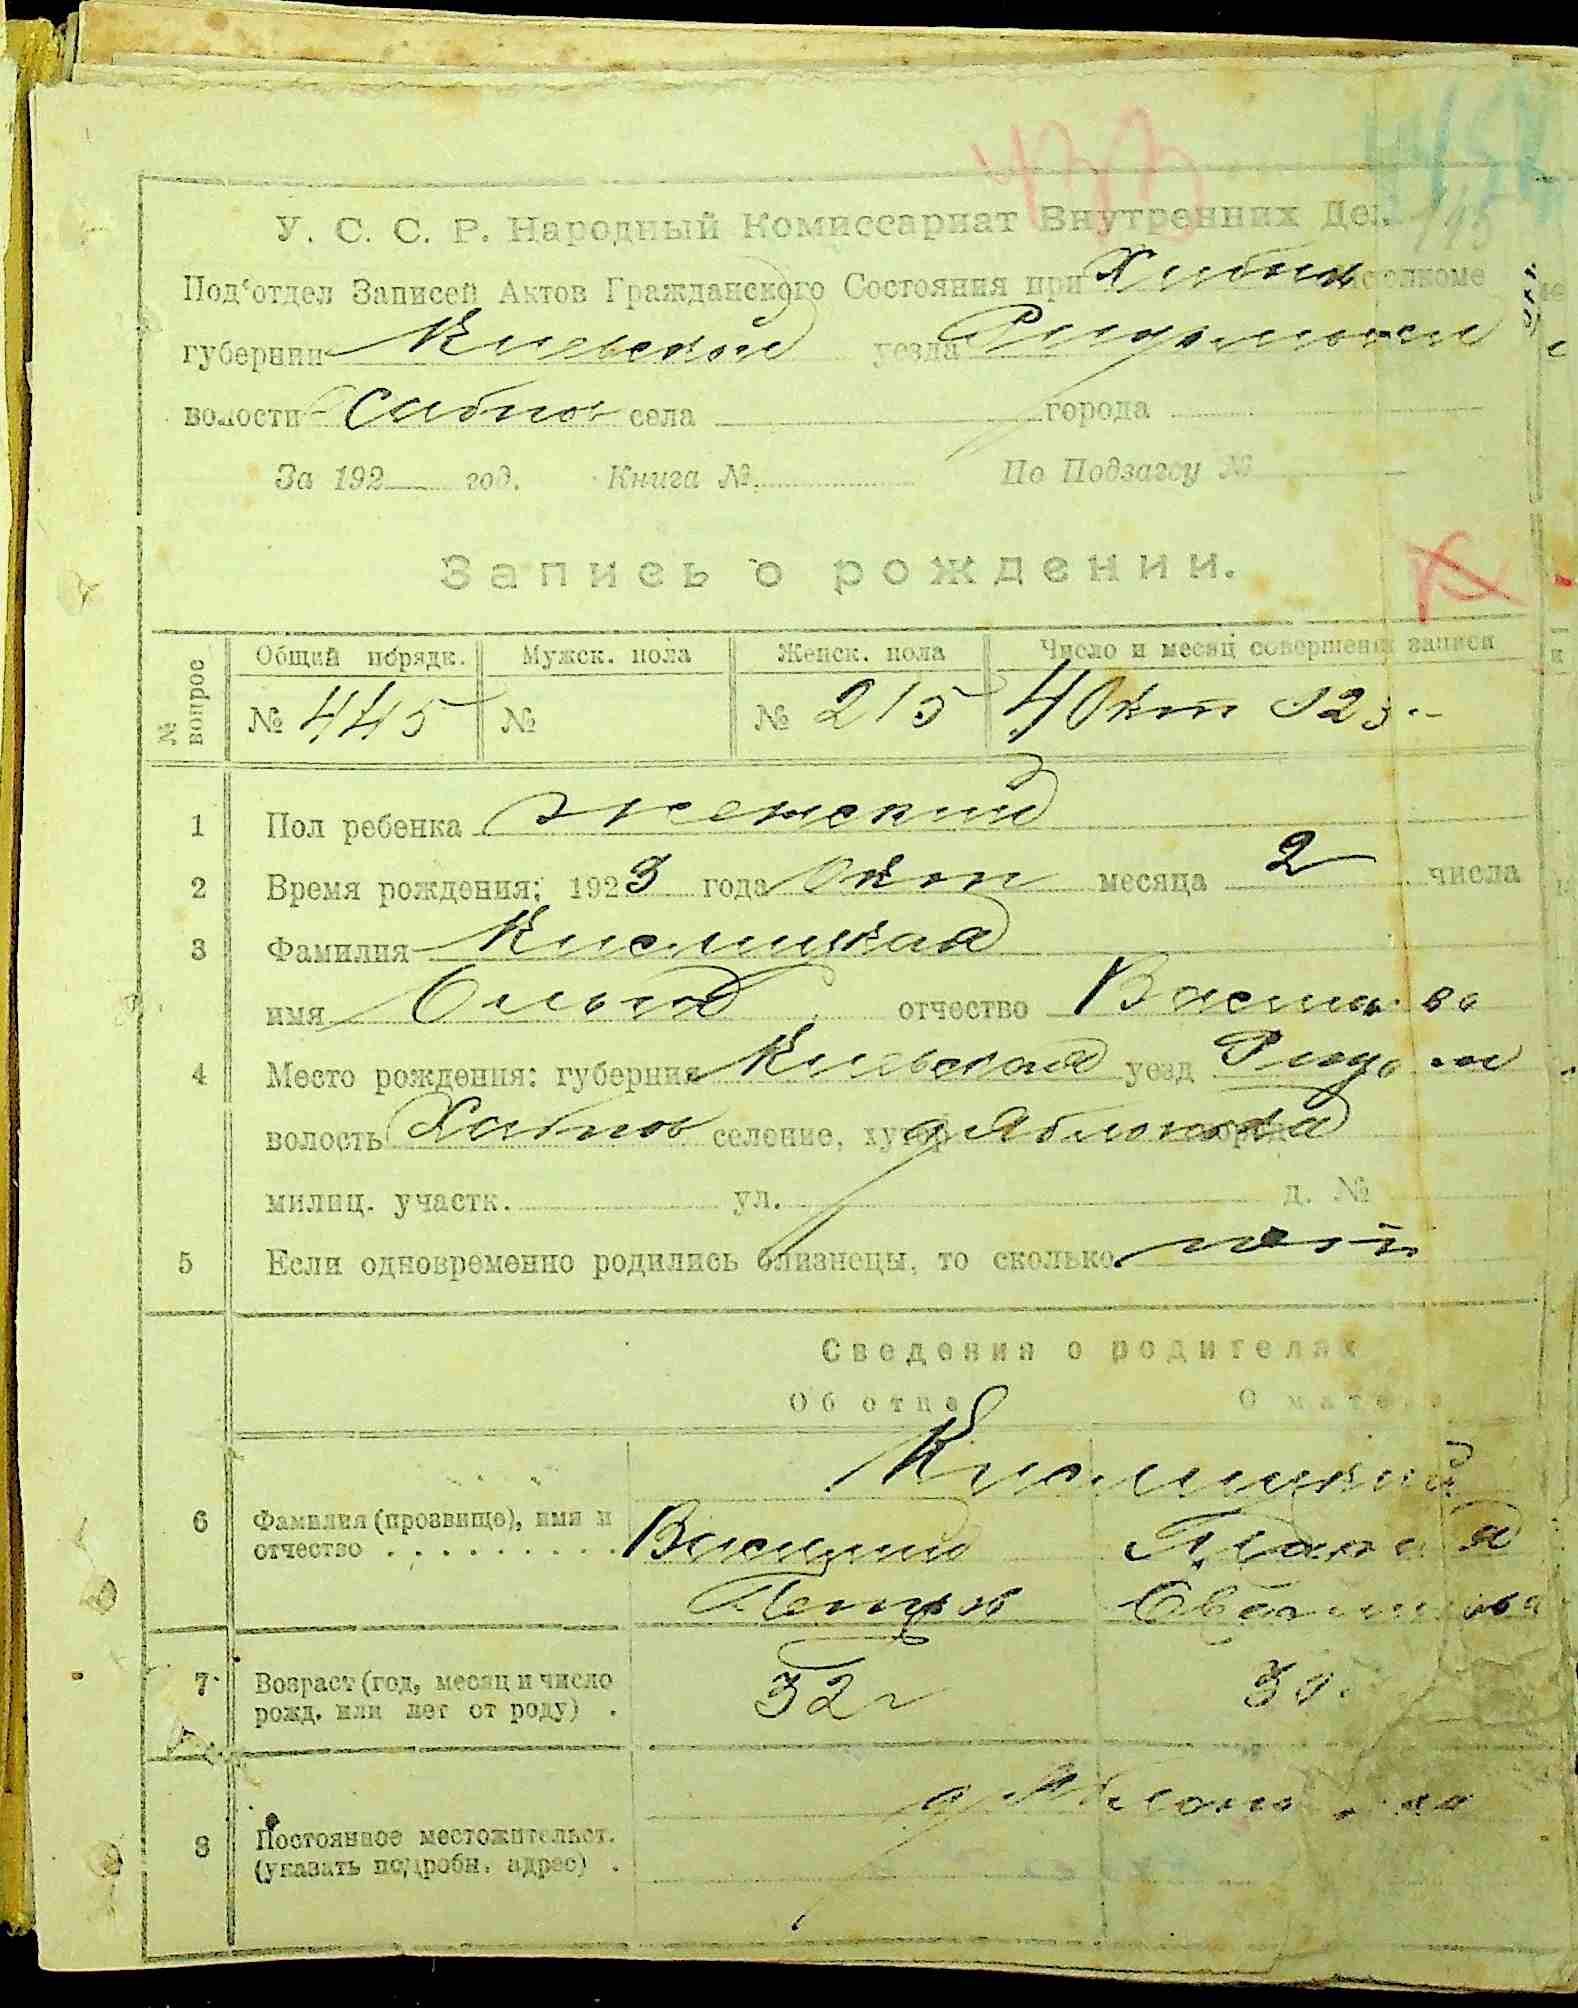 433
У. С. С. Р. Народный Комиссариат Внутренних Дел
Под'отдел Записей Актов Гражданского Состояния при Хабнов
губернии Киевской уезда
волости Хабнов села города
За 192 год. Книга № По Подзагсу №
Запись о рождении.
№ вопрос
Общий порядк. Мужск. пола Женск. пола Число и месяц совершения записи
№ 445 № № 215 4 Окт 923
1 Пол ребенка женский
2 Время рождения: 1923 года Окт месяца 2 числа
3 Фамилия Кислицкая
имя Ольга отчество Василь
4 Место рождения: губерния Киевская уезд
волость Хабнов селение, хутор д Яблонька
милиц. участк. ул. д. №
5 Если одновременно родились близнецы, то сколько нет
Сведения о родителях
Об отце О матери
Кислицкий
6 Фамилия (прозвище), имя и Василий
отчество Петров
7 Возраст (год, месяц и число 32 г 30
рожд. или лет от роду)
д Яблонька
8 Постоянное местожительст.
(указать подробн. адрес)